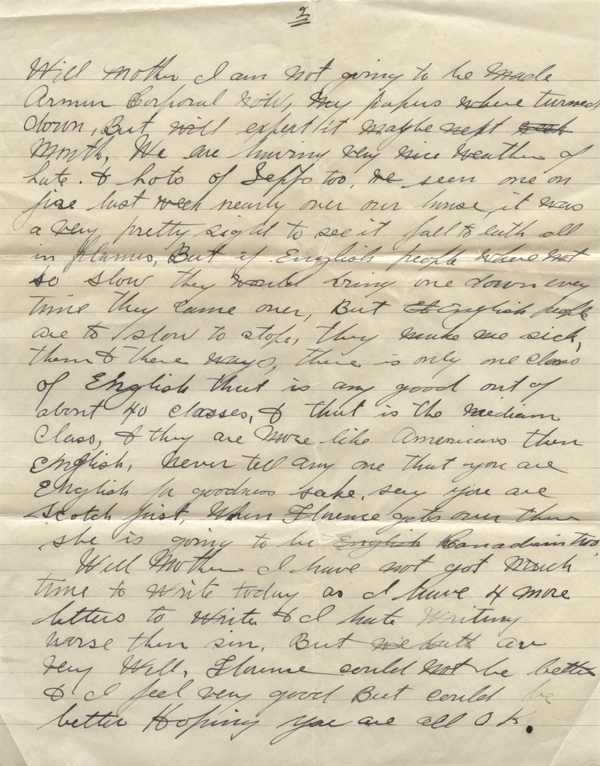 2
Will Mother I am not going to be Made
Armur Corporal now, My papers where turned
down, But will expect it maybe next week
Month, We are having very nice weather of
late. & lots of Zepps too, we seen one on
fire last week nearly over our house, it was
a very pretty sight to see it fall to earth all
in flames, But if English people where not
so slow they would bring one down every
time they came over, But English people
are to slow to stop, they make me sick,
them & there ways, there is only one class
of English that is any good out of
about 40 classes, & that is the medium
Class, & they are More like Americans then
English, never tell any one that you are
English for goodness sake, say you are
Scotch first, When Florence gets over there
she is going to be English Canadian too,
Will Mother I have not got Much
time to write today as I have 4 more
letters to write & I hate writing
worse then sin, But we both are
very Will, Florence could not be better
& I feel very good But could be
better Hoping you are all O.K.